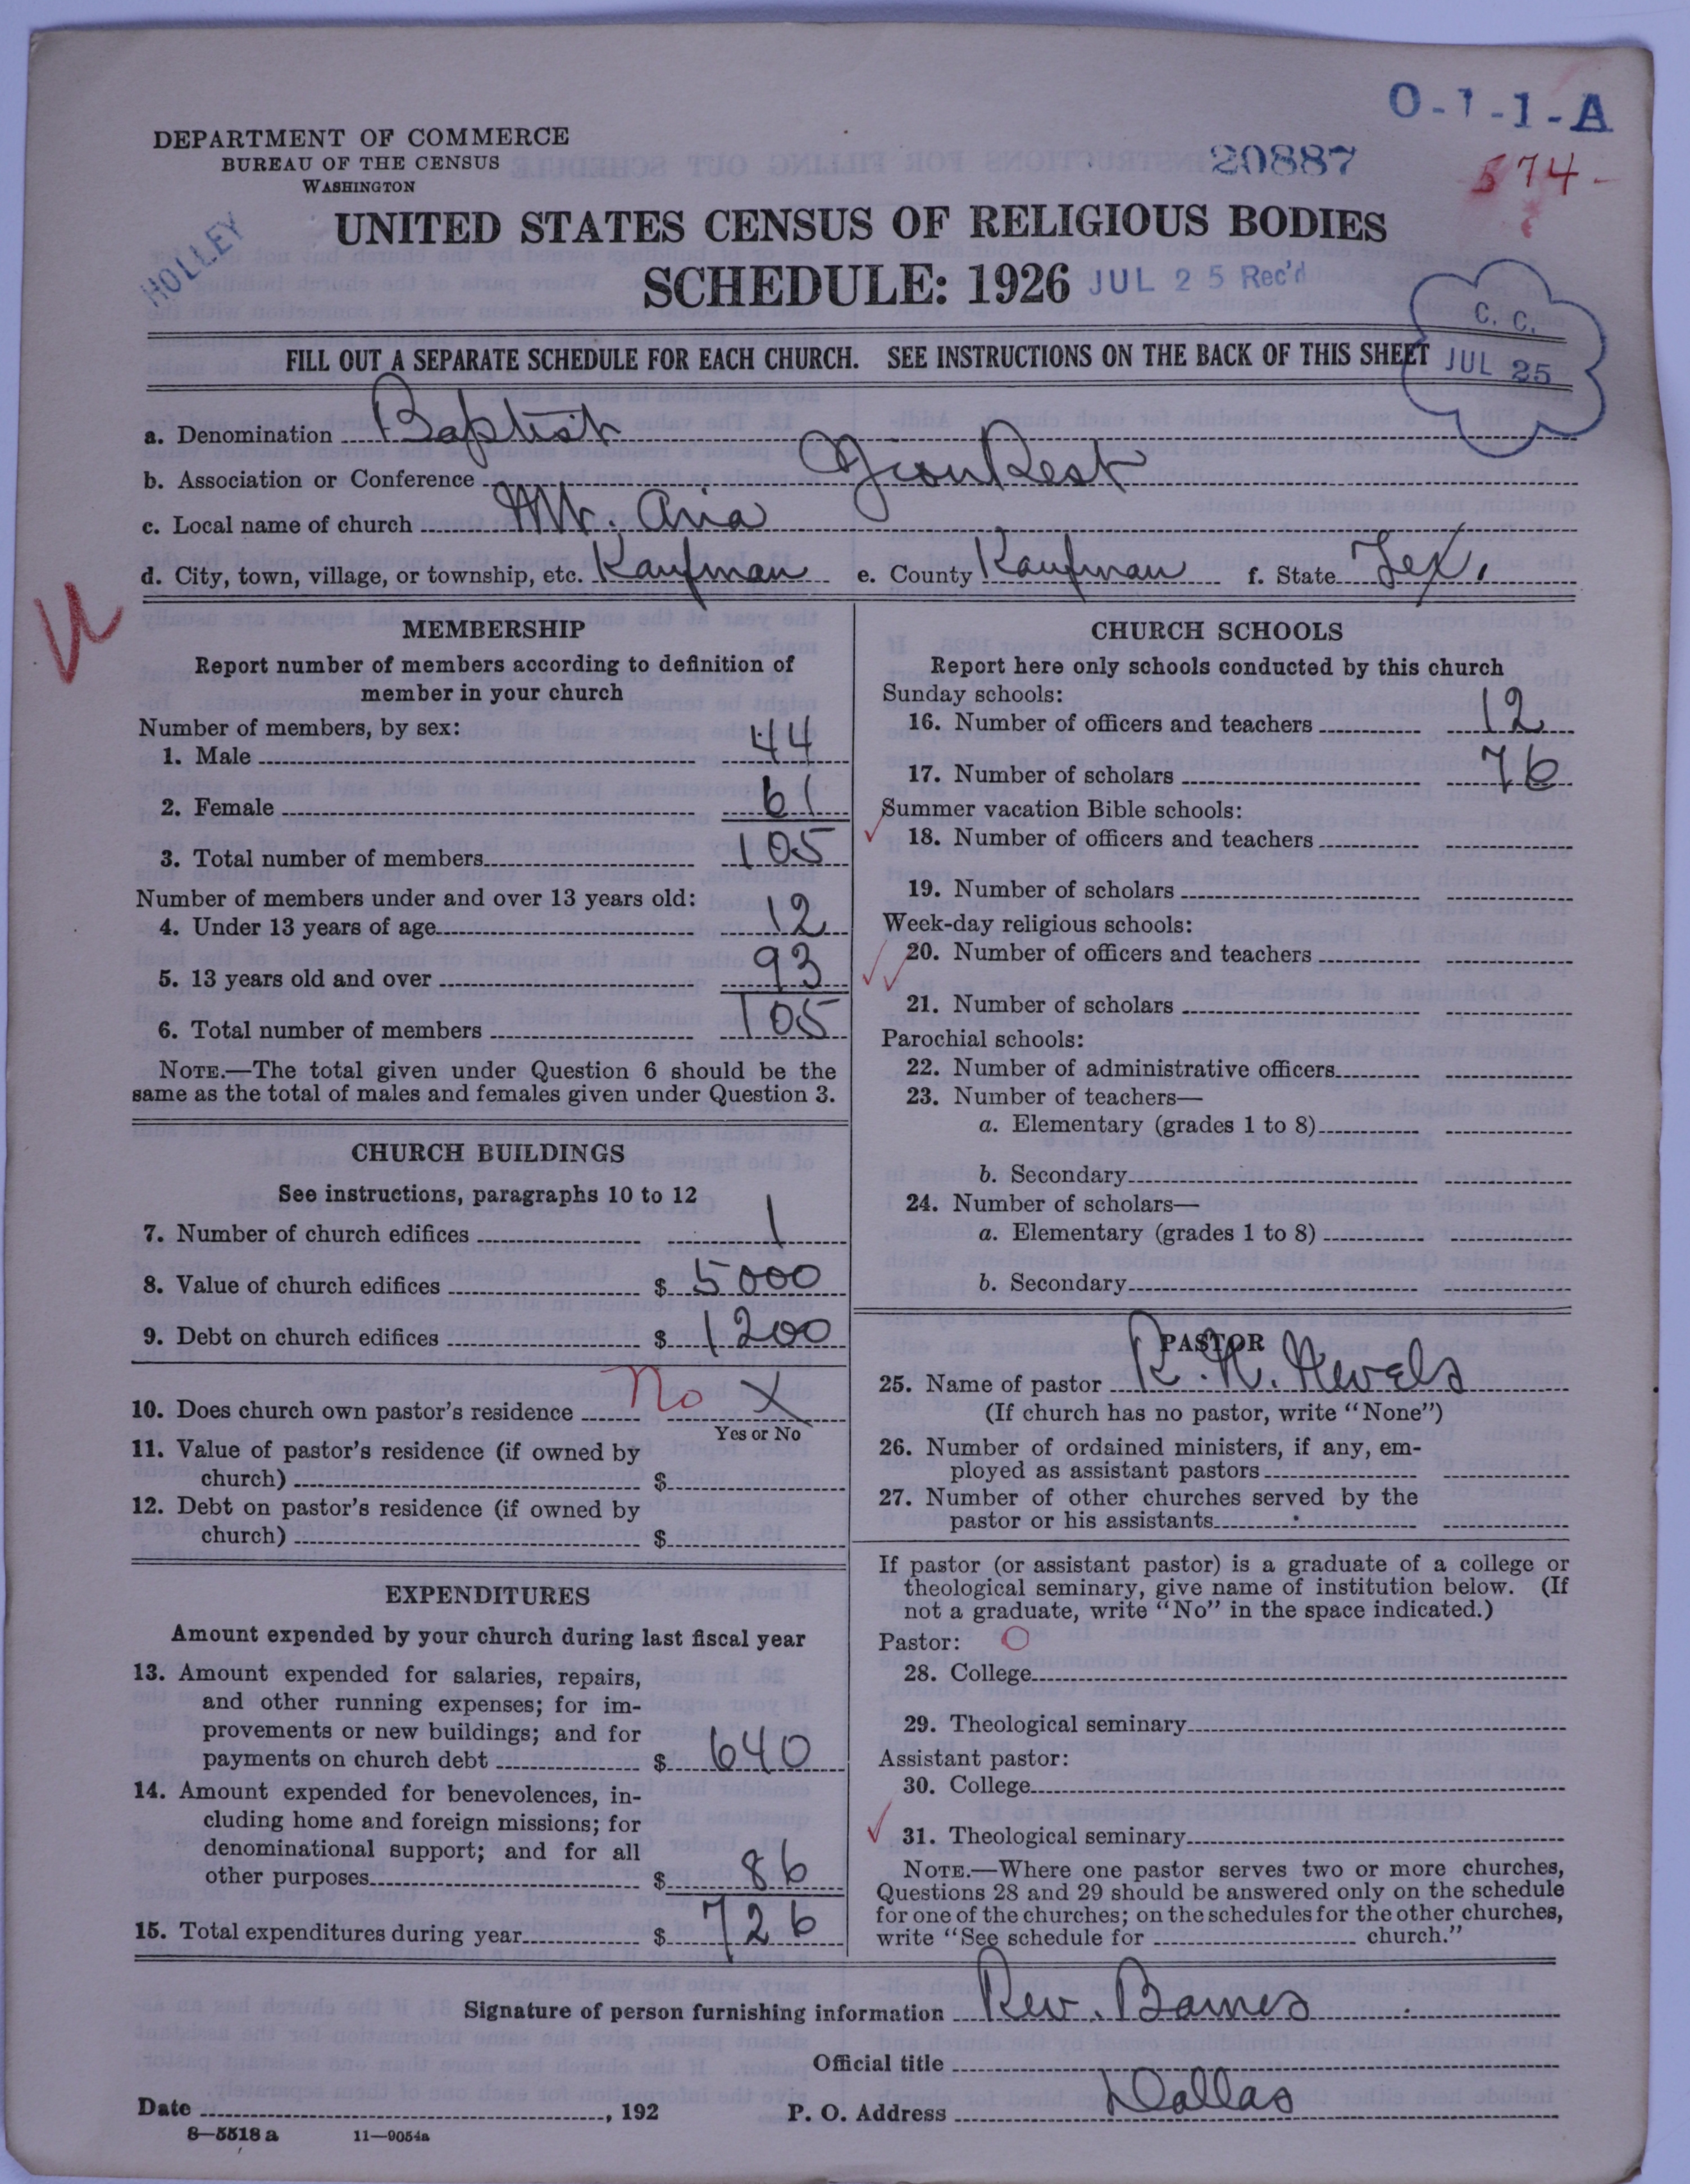 O-1-1-A
DEPARTMENT OF COMMERCE
BUREAU OF THE CENSUS
WASHINGTON
20887
574-
HOLLEY
UNITED STATES CENSUS OF RELIGIOUS BODIES
SCHEDULE: 1926 JUL 25 Rec'd
C. C.
JUL 25
FILL OUT A SEPARATE SCHEDULE FOR EACH CHURCH. SEE INSTRUCTIONS ON THE BACK OF THIS SHEET
a. Denomination Baptist
b. Association or Conference Zion Rest
c. Local name of church Mt. Aria
d. City, town, village, or township, etc. Kaufman e. County Kaufman f. State Tex.
MEMBERSHIP
Report number of members according to definition of
member in your church
Number of members, by sex:
1. Male 44
2. Female 61
3. Total number of members 105
Number of members under and over 13 years old:
4. Under 13 years of age 12
5. 13 years old and over 93
6. Total number of members 105
NOTE.—The total given under Question 6 should be the
same as the total of males and females given under Question 3.
CHURCH BUILDINGS
See instructions, paragraphs 10 to 12
7. Number of church edifices 1
8. Value of church edifices $ 5000
9. Debt on church edifices $ 1200
10. Does church own pastor's residence No X
Yes or No
11. Value of pastor's residence (if owned by
church) $
12. Debt on pastor's residence (if owned by
church) $
EXPENDITURES
Amount expended by your church during last fiscal year
13. Amount expended for salaries, repairs,
and other running expenses; for im-
provements or new buildings; and for
payments on church debt $ 640
14. Amount expended for benevolences, in-
cluding home and foreign missions; for
denominational support; and for all
other purposes $ 86
15. Total expenditures during year $ 726
CHURCH SCHOOLS
Report here only schools conducted by this church
Sunday schools:
16. Number of officers and teachers 12
17. Number of scholars 76
Summer vacation Bible schools:
18. Number of officers and teachers
19. Number of scholars
Week-day religious schools:
20. Number of officers and teachers
21. Number of scholars
Parochial schools:
22. Number of administrative officers
23. Number of teachers—
a. Elementary (grades 1 to 8)
b. Secondary
24. Number of scholars—
a. Elementary (grades 1 to 8)
b. Secondary
PASTOR
25. Name of pastor R. N. Nevels
(If church has no pastor, write "None")
26. Number of ordained ministers, if any, em-
ployed as assistant pastors
27. Number of other churches served by the
pastor or his assistants
If pastor (or assistant pastor) is a graduate of a college or
theological seminary, give name of institution below. (If
not a graduate, write "No" in the space indicated.)
Pastor: O
28. College
29. Theological seminary
Assistant pastor:
30. College
31. Theological seminary
NOTE.—Where one pastor serves two or more churches,
Questions 28 and 29 should be answered only on the schedule
for one of the churches; on the schedules for the other churches,
write "See schedule for church."
Signature of person furnishing information Rev. Barnes
Official title
Date , 192 P. O. Address Dallas
8—5518 a 11—9054a